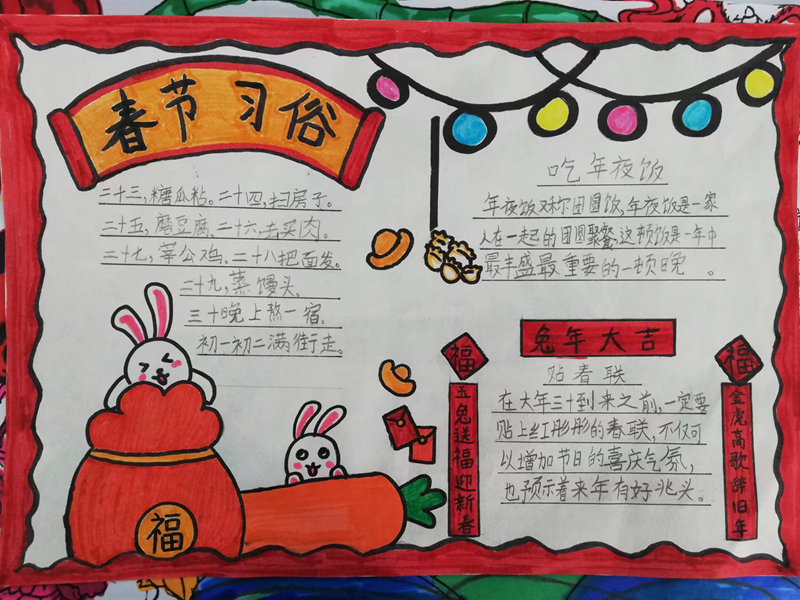 春节习俗
二十三,糖瓜粘。二十四,扫房子。
二十五,磨豆腐,二十六,去买肉。
二十七,宰公鸡。二十八把面发。
二十九,蒸馒头,
三十晚上熬一宿,
初一初二满街走。
福
吃年夜饭
年夜饭又称团圆饭,年夜饭是一家
人在一起的团圆聚餐,这顿饭是一年中
最丰盛最重要的一顿晚 。
兔年大吉
贴春联
在大年三十到来之前,一定要
贴上红彤彤的春联,不仅可
以增加节日的喜庆气氛,
也预示着来年有好兆头。
福
玉兔送福迎新春
福
金虎高歌辞旧年